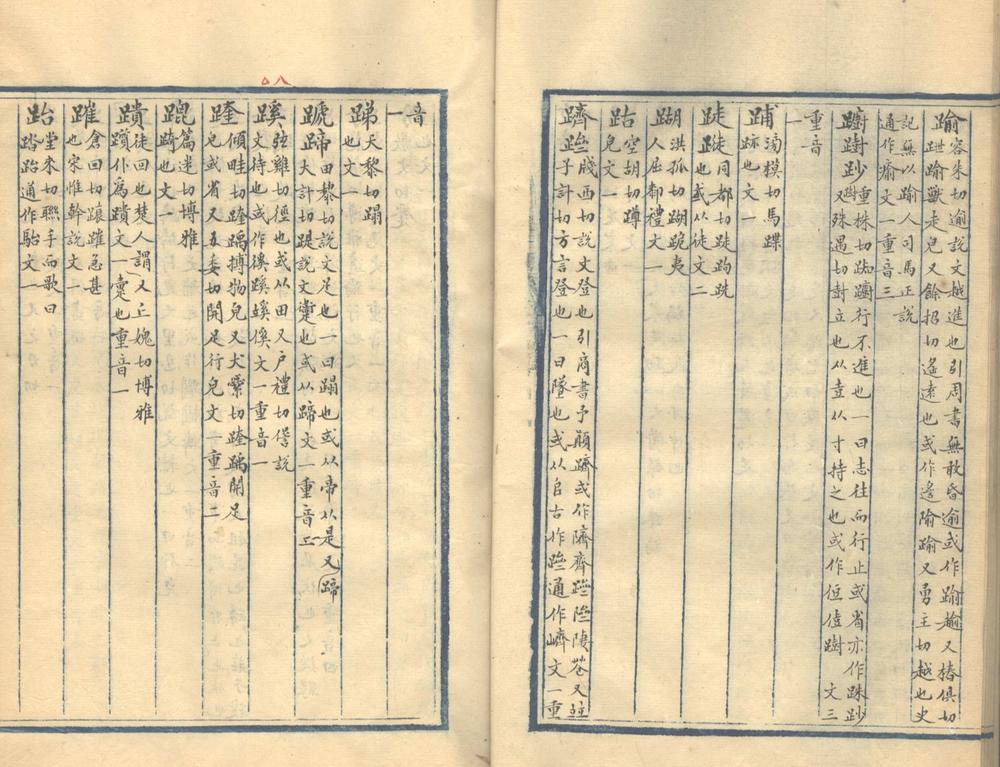 踰容朱切逾說文越進也引周書無敢昏逾或作踰趨又樁俱切
跇踰獸走皃又餘招切遙遠也或作逺踰又勇主切越也史
記無以踰人司馬正說
通作瘉文一重音三
躕跦重株切踟躕行不進也一曰志往而行止或省亦作跦
又殊遇切封立也从壴从寸持之也或作侸尌文三
重音
一
䠙滂模切馬蹀
跡也文一
跿徒同都切跿跔跣
也或从徒文二
䠒洪孤切䠒跪夷
人屈都禮文一
跍空胡切蹲
皃文一
躋牋西切說文登也引商書予顛躋或作隮齊
子計切方言登也一曰墜也或从𨸏古作通作嶠文一重
音
一
踶天黎切蹋
也文一
蹏蹄田黎切說文足也一曰蹋也或从帝从是又蹄
大計切踶說文躗也或从蹄文一重音
蹊弦雞切徑也或从田又戶禮切偕說
文待也或作徯蹊蟋傒文一重音一
踛傾畦切踛踽摶物皃又犬縈切踛踽開足
皃或省久委切開足行皃文一重音二
䠘篇迷切博雅
踦也文一
蹪徒回也楚人謂又丘媿切博雅
躓仆爲蹪文一躗也重音一
蹉倉回切躟蹉急甚
也宋惟幹說文一
跆堂來切聯手而歌曰
踏跆通作駘文一